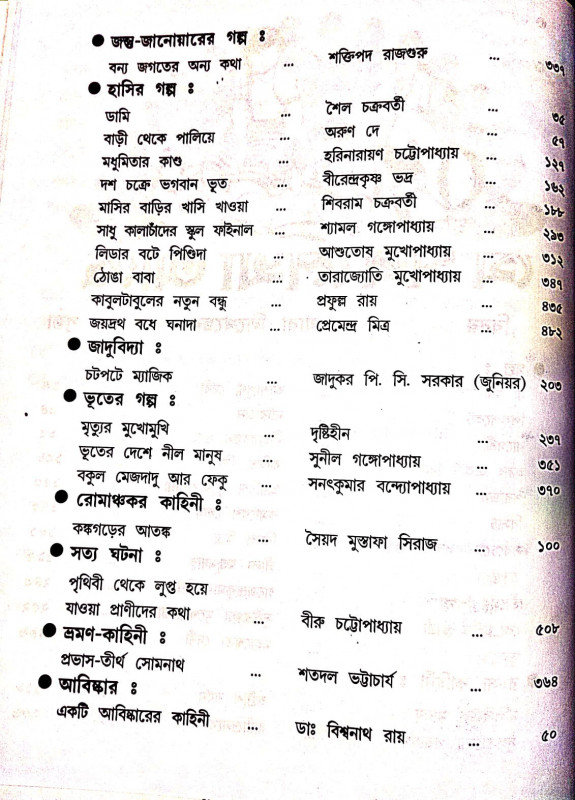 ● জন্তু-জানোয়ারের গল্প :
বন্য জগতের অন্য কথা ... শক্তিপদ রাজগুরু ... ৩৩৭
● হাসির গল্প :
ডামি ... শৈল চক্রবর্তী ... ৩৫
বাড়ী থেকে পালিয়ে ... অরুণ দে ... ৫৭
মধুমিতার কাণ্ড ... হরিনারায়ণ চট্টোপাধ্যায় ... ১২৭
দশ চক্রে ভগবান ভূত ... বীরেন্দ্রকৃষ্ণ ভদ্র ... ১৬২
মাসির বাড়ির খাসি খাওয়া ... শিবরাম চক্রবর্তী ... ১৮৮
সাধু কালাচাঁদের স্কুল ফাইনাল ... শ্যামল গঙ্গোপাধ্যায় ... ২৯৩
লিডার বটে পিণ্ডিদা ... আশুতোষ মুখোপাধ্যায় ... ৩১২
ঠোঙা বাবা ... তারাজ্যোতি মুখোপাধ্যায় ... ৩৪৭
কাবুলটাবুলের নতুন বন্ধু ... প্রফুল্ল রায় ... ৪৩৫
জয়দ্রথ বধে ঘনাদা ... প্রেমেন্দ্র মিত্র ... ৪৮২
● জাদুবিদ্যা :
চটপটে ম্যাজিক ... জাদুকর পি. সি. সরকার (জুনিয়র) ২০৩
● ভূতের গল্প :
মৃত্যুর মুখোমুখি ... দৃষ্টিহীন ... ২৩৭
ভূতের দেশে নীল মানুষ ... সুনীল গঙ্গোপাধ্যায় ... ৩৫১
বকুল মেজদাদু আর ফেকু ... সনৎকুমার বন্দ্যোপাধ্যায় ... ৩৭০
● রোমাঞ্চকর কাহিনী :
কঙ্কগড়ের আতঙ্ক ... সৈয়দ মুস্তাফা সিরাজ ... ১০০
● সত্য ঘটনা :
পৃথিবী থেকে লুপ্ত হয়ে
যাওয়া প্রাণীদের কথা ... বীরু চট্টোপাধ্যায় ... ৫০৮
● ভ্রমণ-কাহিনী :
প্রভাস-তীর্থ সোমনাথ ... শতদল ভট্টাচার্য ... ৩৬৪
● আবিষ্কার :
একটি আবিষ্কারের কাহিনী ... ডাঃ বিশ্বনাথ রায় ... ৫০